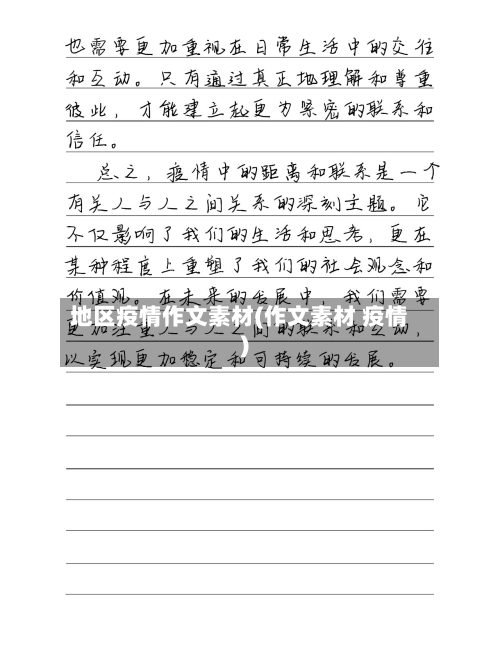 也需要更加重视在日常生活中的交往
和互动。只有通过真正地理解和尊重
彼此，才能建立起更为紧密的联系和
信任。
总之，疫情中的距离和联系是一个
有关人与人之间关系的深刻主题。它
不仅影响了我们的生活和思考，更在
某种程度上重塑了我们的社会观念和
价值观。在未来的发展中，我们需要
地区疫情作文素材(作文素材 疫情
)
更加注重人与人之间的联系和互动，
以实现更加稳定和可持续的发展。